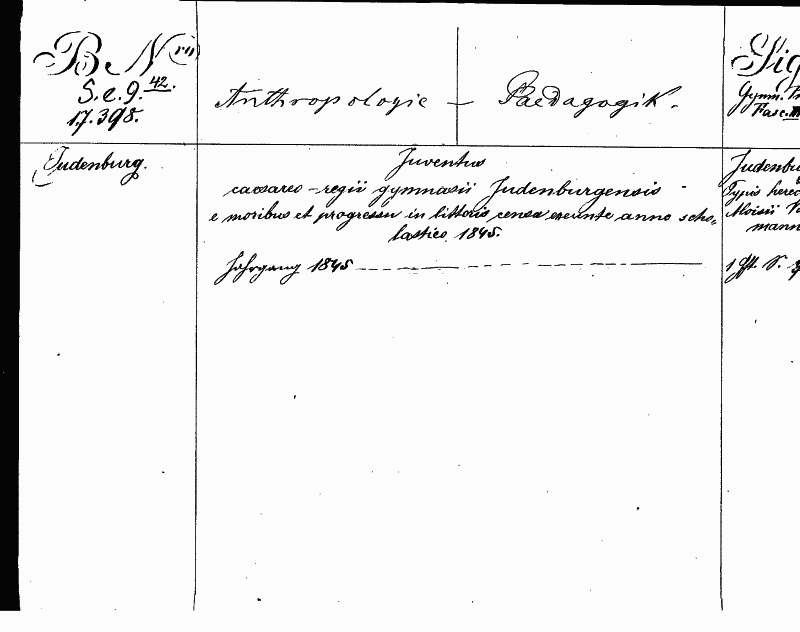 B. Nrū Sig
S.e.9.42.
17.398.
Anthropologie — Paedagogik.
Gymn.
Fasc. III
Judenburg.
Juventus
caesareo-regii gymnasii Judenburgensis
e moribus et progressu in litteris censa exeunte anno scho-
lastico 1845.
Jahrgang 1845
Judenbu
Typis hered
Aloisii
mann
1 Hft. 8.